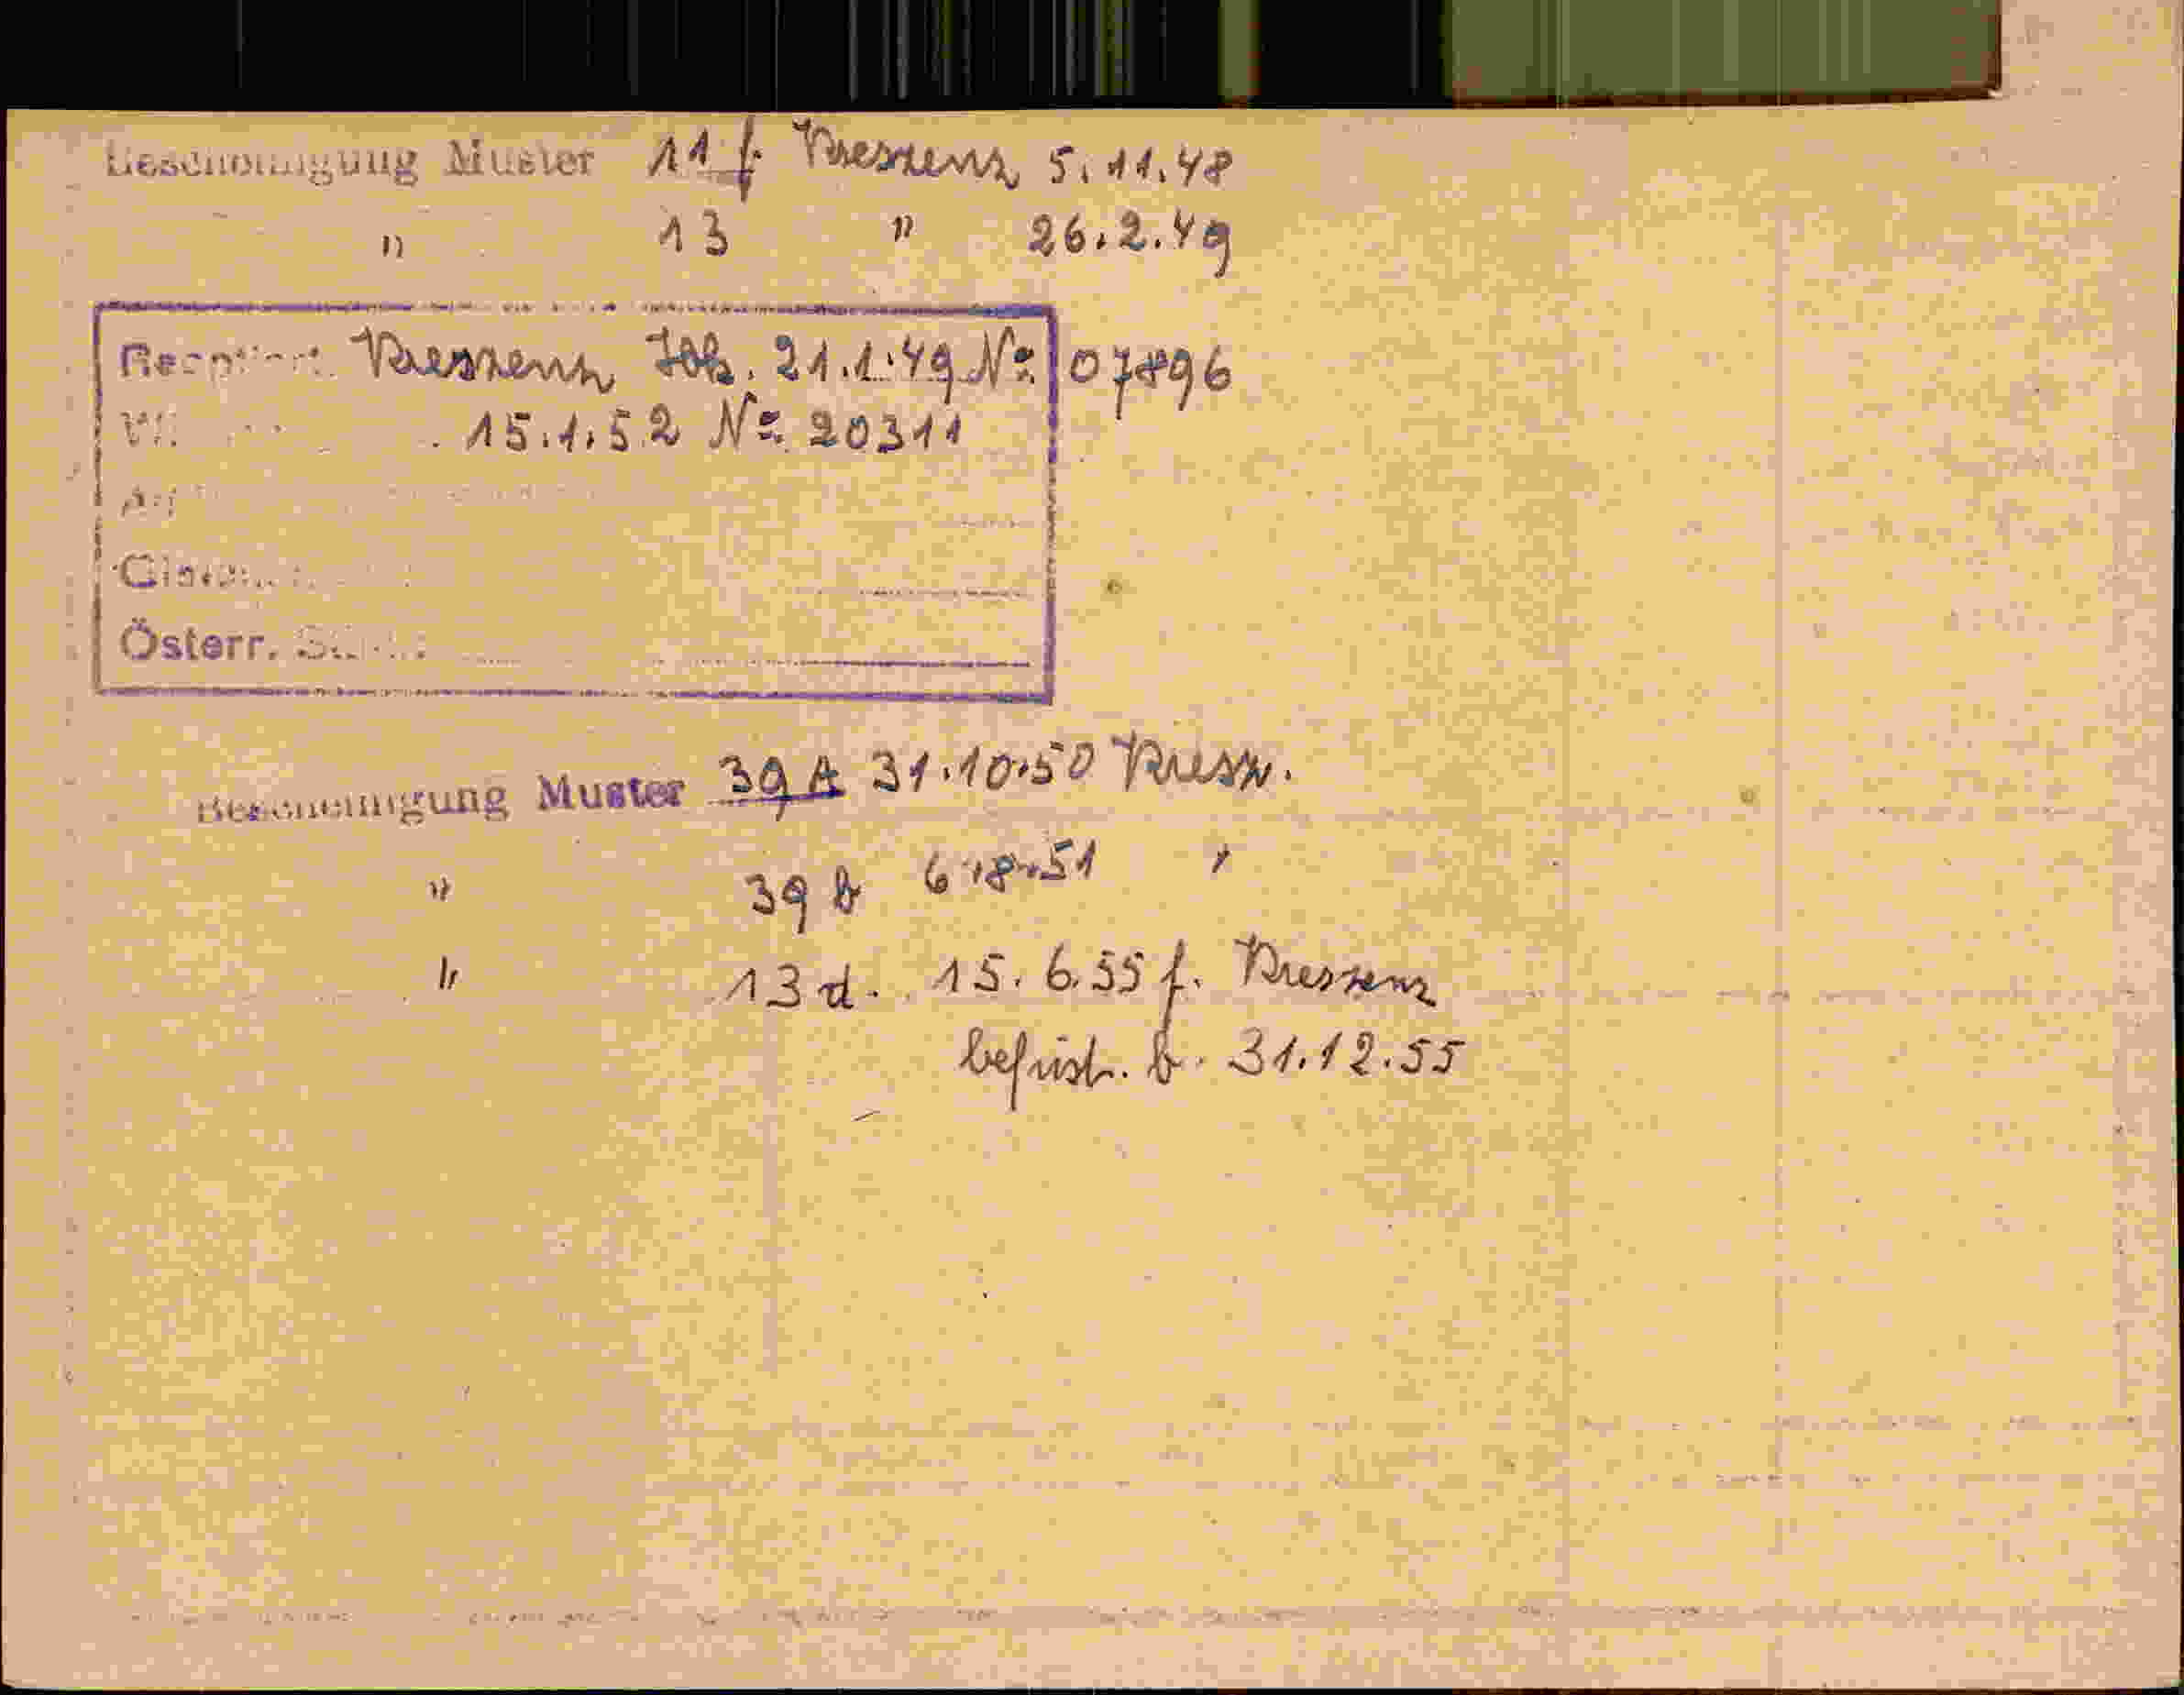 Bescheinigung Muster 11 f. Kreszenz 5.11.48
" 13 " 26.2.49
Kreszenz Joh. 21.1.49 No. 07896
15.1.52 No. 20311
Österr.
Bescheinigung Muster 39 A 31.10.50 Kresz.
" 39 b 6.8.51 "
" 13 d. 15.6.55 f. Kreszenz
befrist. b. 31.12.55